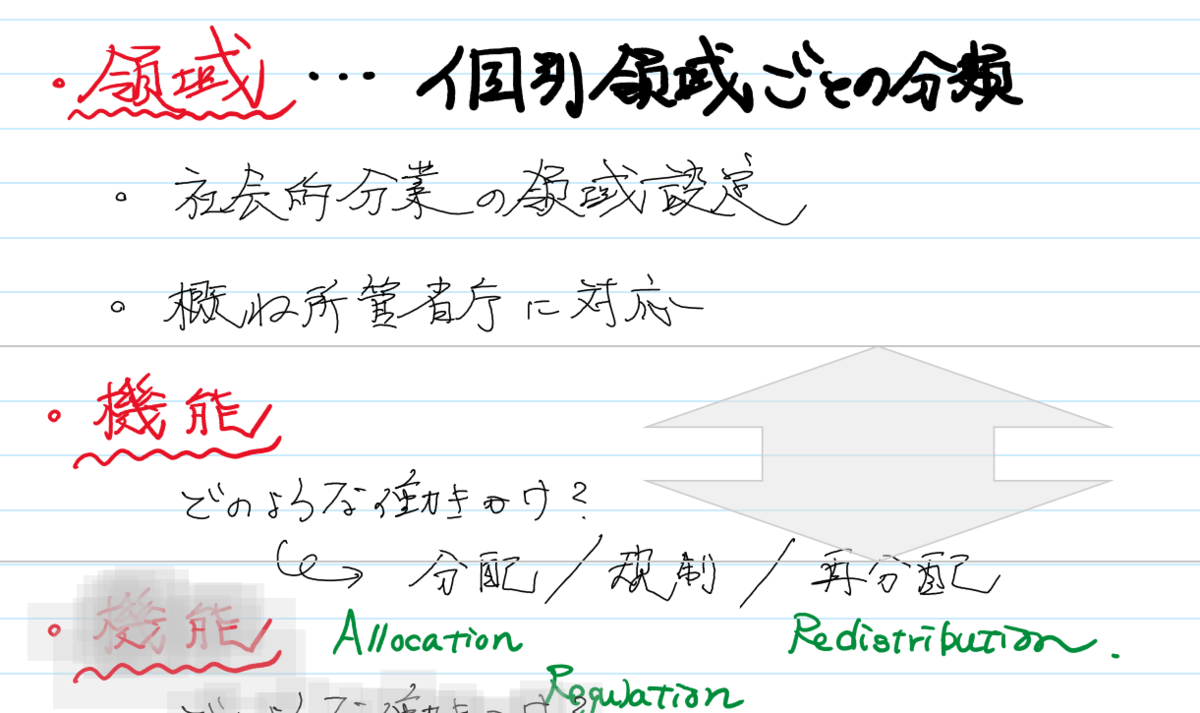 ・領域 … 個別領域ごとの分類
。社会的分業の領域設定
。概ね所管省庁に対応
・機能
どのような働きかけ?
↪ 分配/規制/再分配
・機能 Allocation Redistribution.
Regulation
どのような働きかけ?